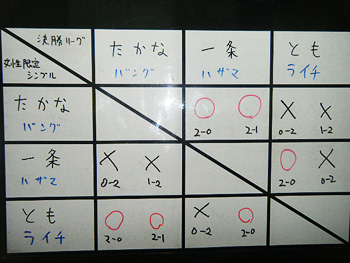 決勝リーグ
女性限定
シングル
たかな
バング
一条
ハザマ
とも
ライチ
たかな
バング
○ ○ × ×
2-0 2-1 0-2 1-2
一条
ハザマ
× × ○ ×
0-2 1-2 2-0 0-2
とも
ライチ
○ ○ × ○
2-0 2-1 0-2 2-0